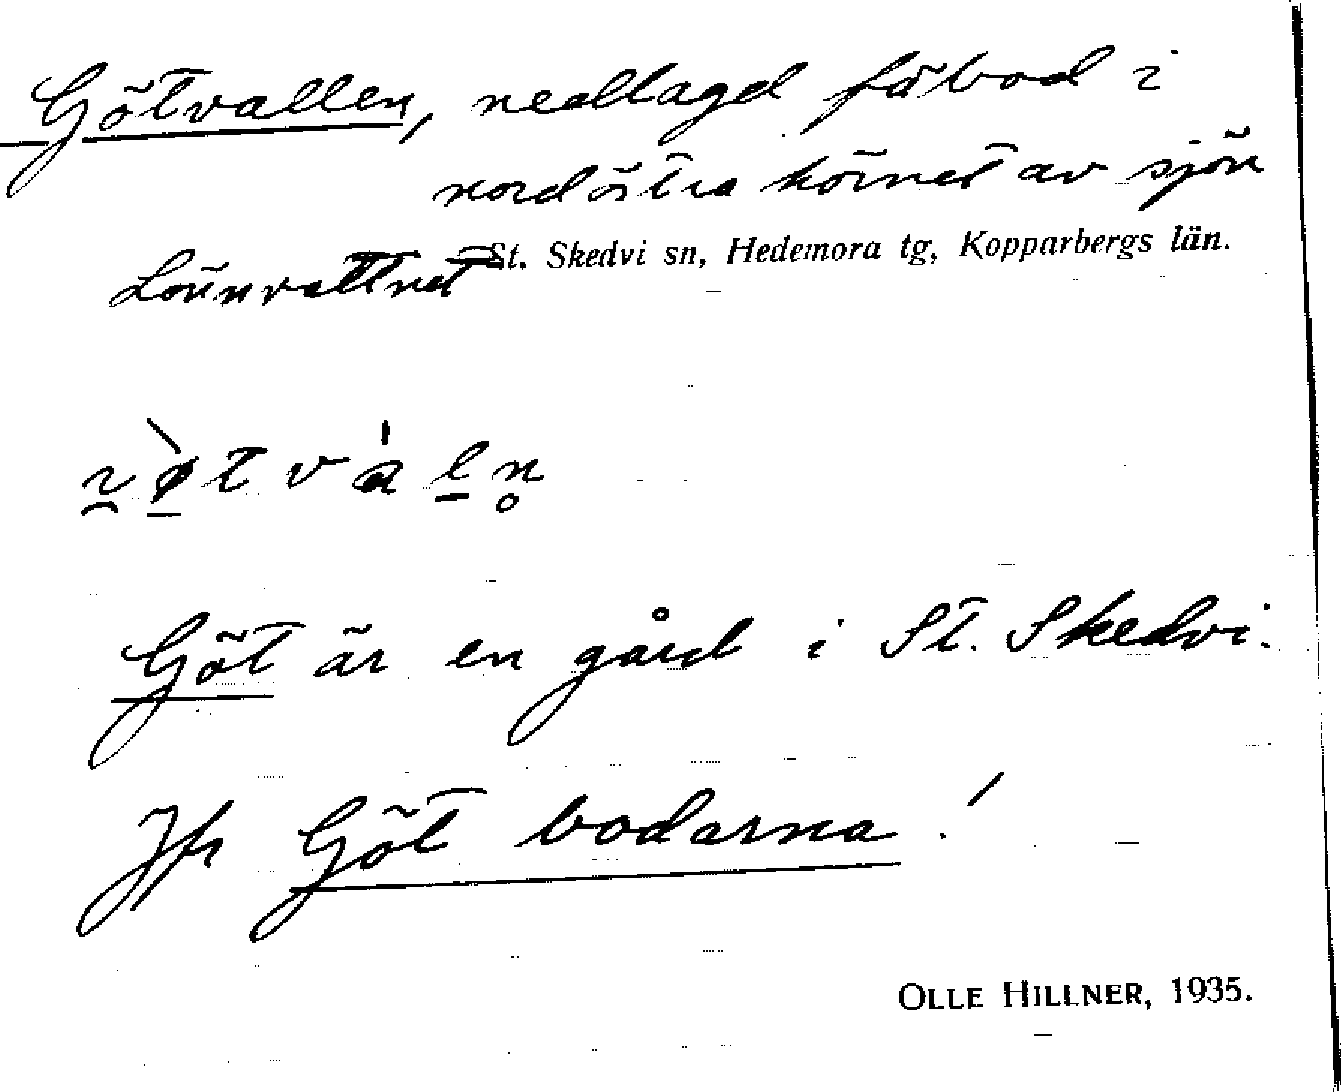 Götvallen, nedlagd fäbod i
nordöstra hörnet av sjön
St. Skedvi sn, Hedemora tg, Kopparbergs län.
Lönnvattnet
Göt är en gård i St. Skedvi.
Jfr Götbodarna!
OLLE HILLNER, 1935.